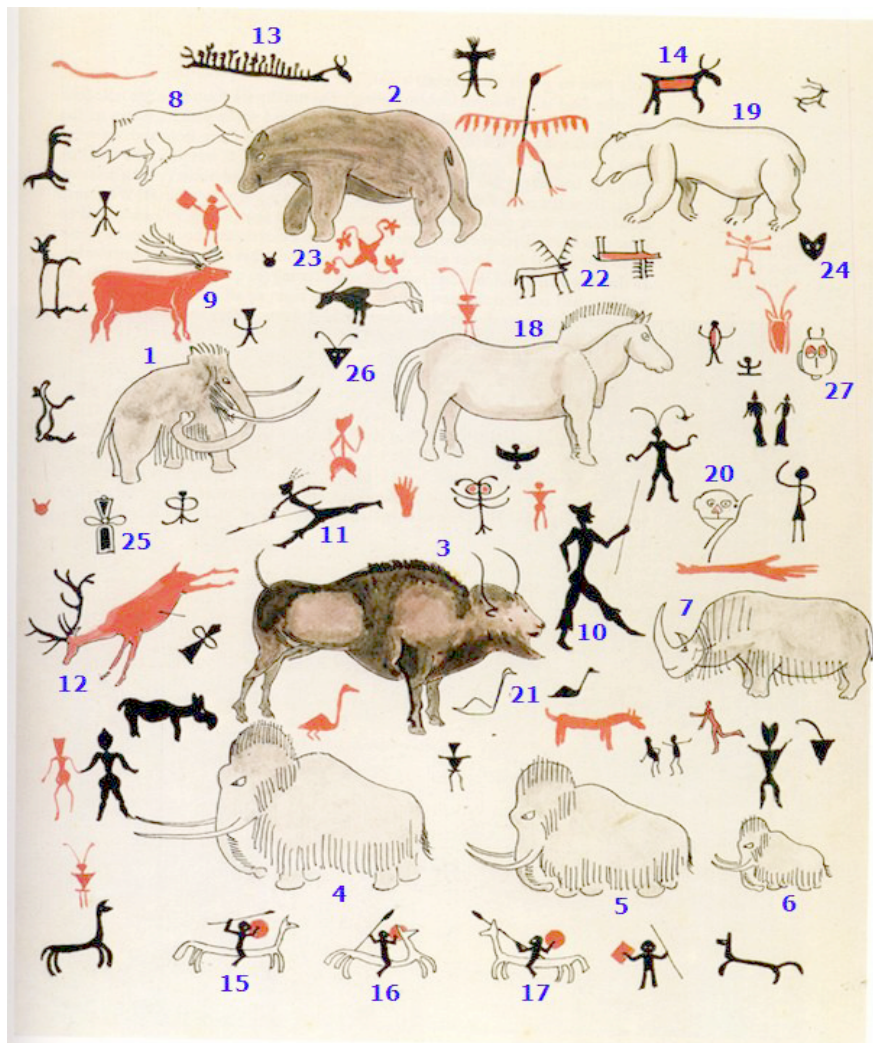 13
14
8
2
19
23
22
24
9
18
1
26
27
20
25
11
3
10
7
12
21
4
5
6
15
16
17